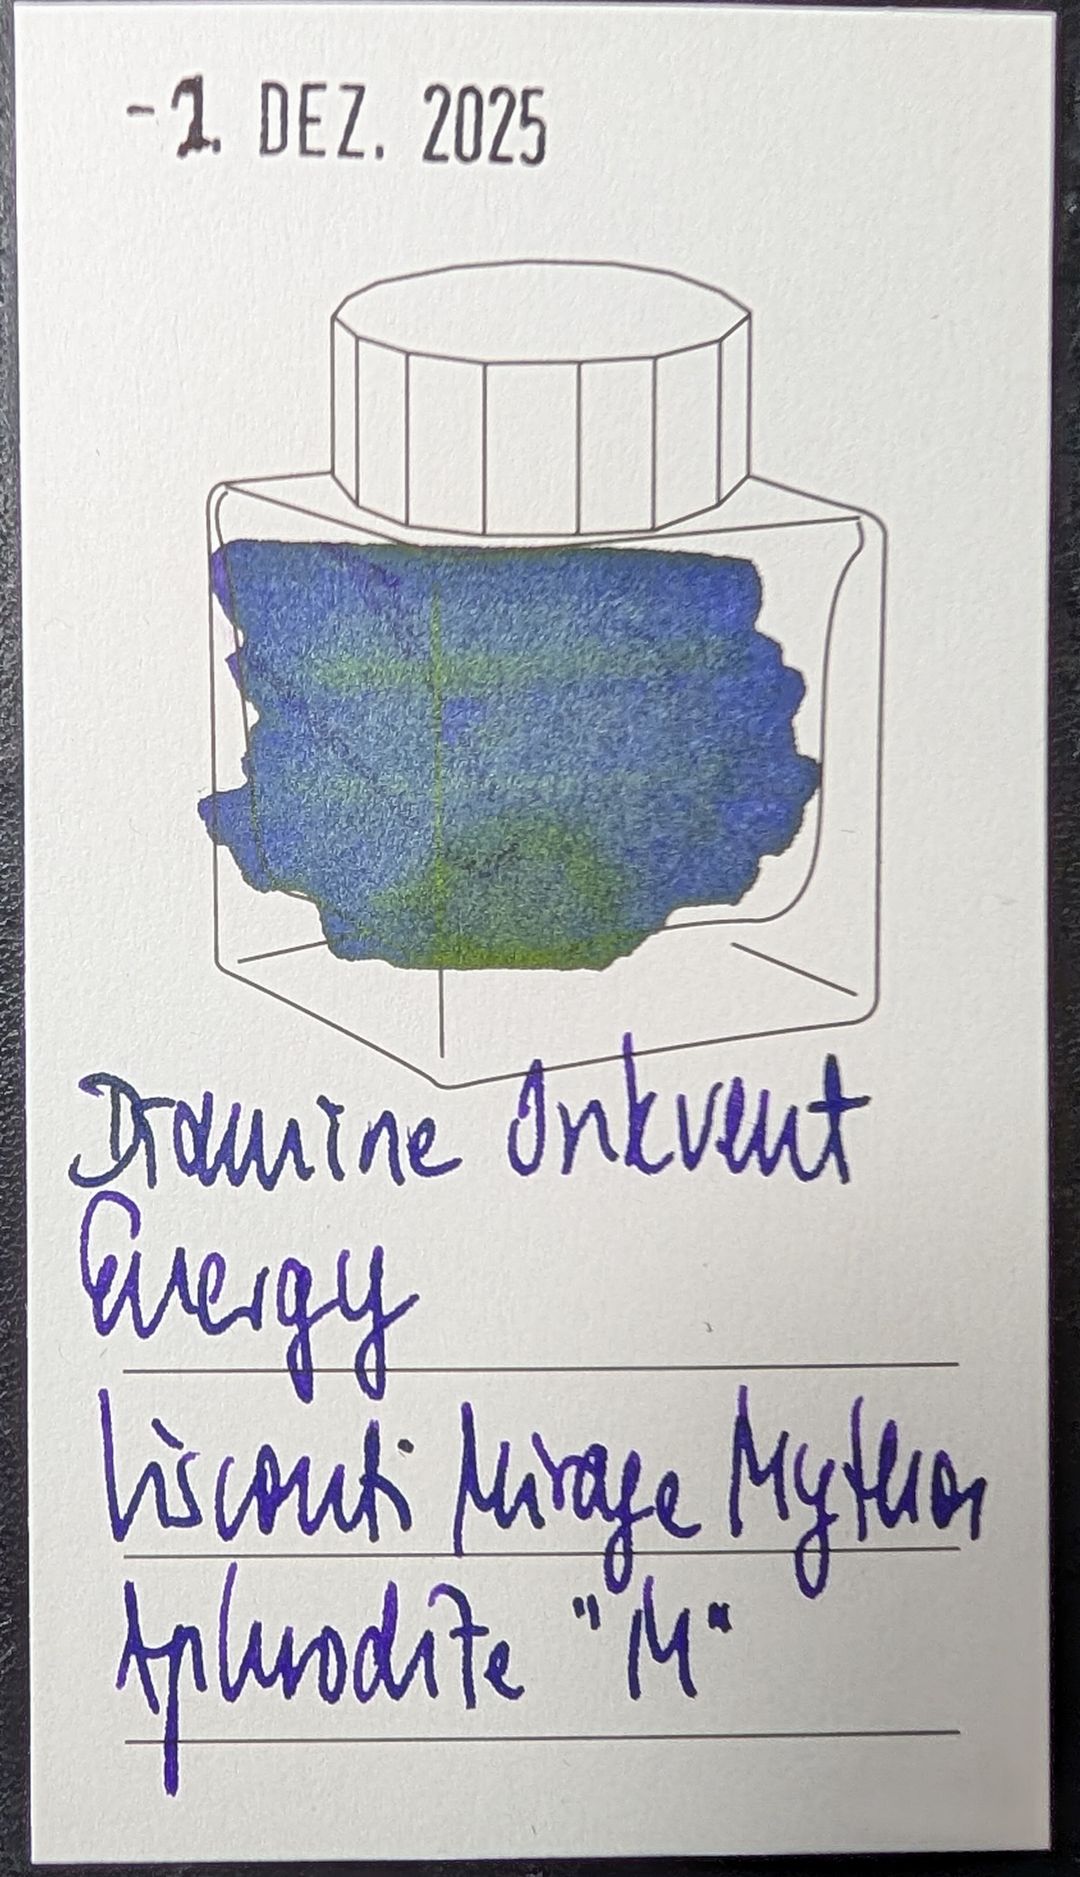 -1. DEZ. 2025
Diamine Inkvent
Energy
Visconti Mirage Mythos
Aphrodite "M"